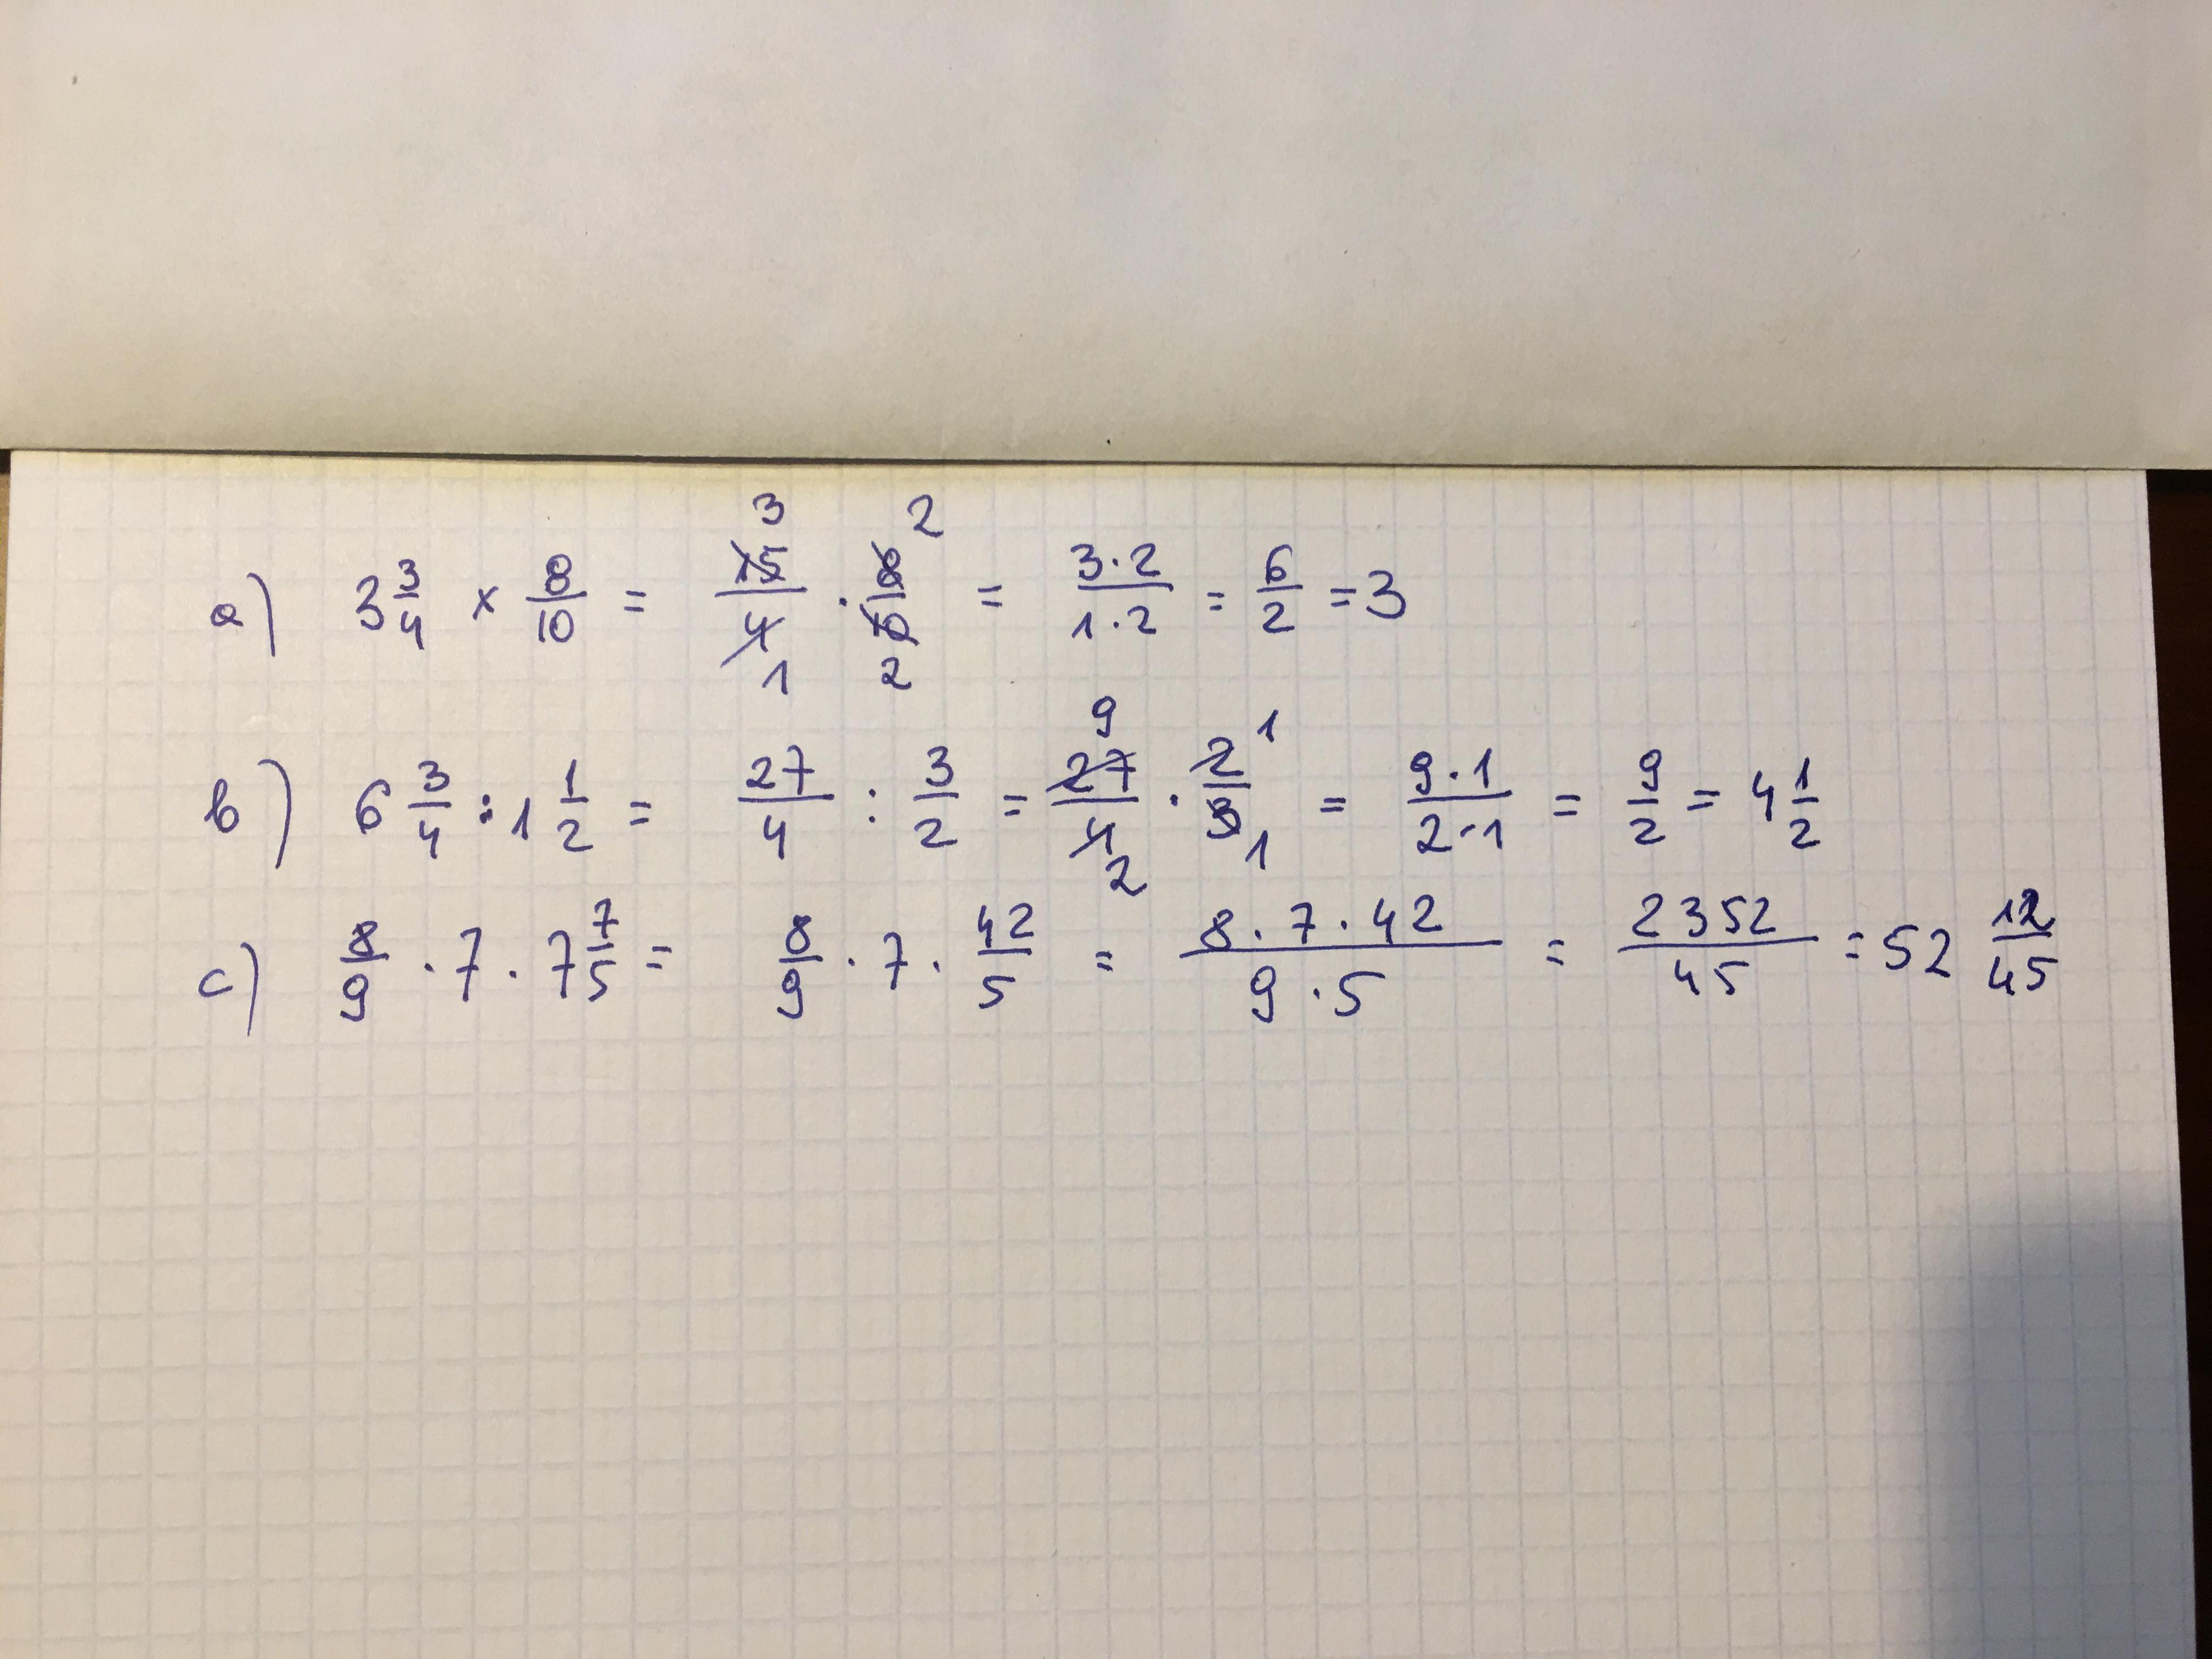 a) 3 3/4 × 8/10 = 15/4 · 8/10 = 3·2/1·2 = 6/2 = 3
b) 6 3/4 : 1 1/2 = 27/4 : 3/2 = 27/4 · 2/3 = 9·1/2·1 = 9/2 = 4 1/2
c) 8/9 · 7 · 7 7/5 = 8/9 · 7 · 42/5 = 8·7·42/9·5 = 2352/45 = 52 12/45